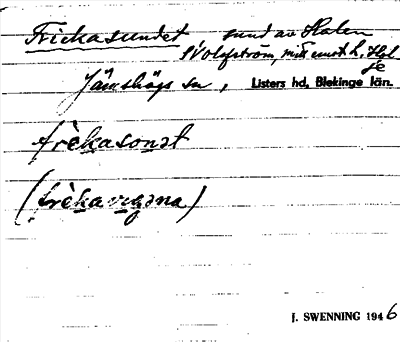 Frickasundet sund av Halen
SV Olofström, mitt emot h. Hal
je
Jämshögs sn, Listers hd, Blekinge län.
frèkasonət
(frèkavıgəna)
J. SWENNING 1946